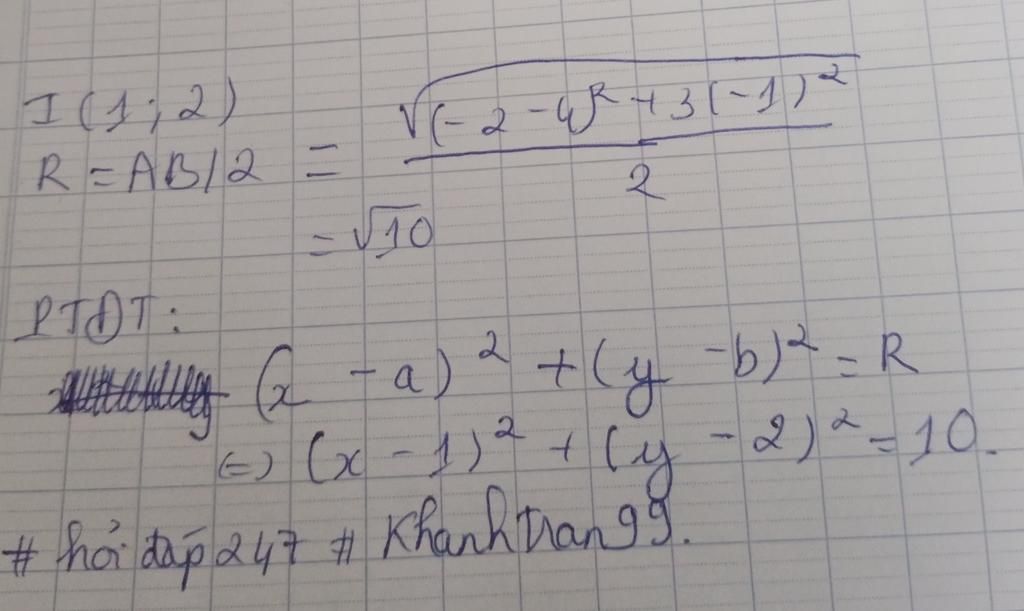 I(1;2)
R = AB/2 = √((-2-4)² + 3(-1)²) / 2
= √10
PTĐT:
(x - a)² + (y - b)² = R
(=) (x - 1)² + (y - 2)² = 10.
# hỏi đáp 247 # Khanhtran99.